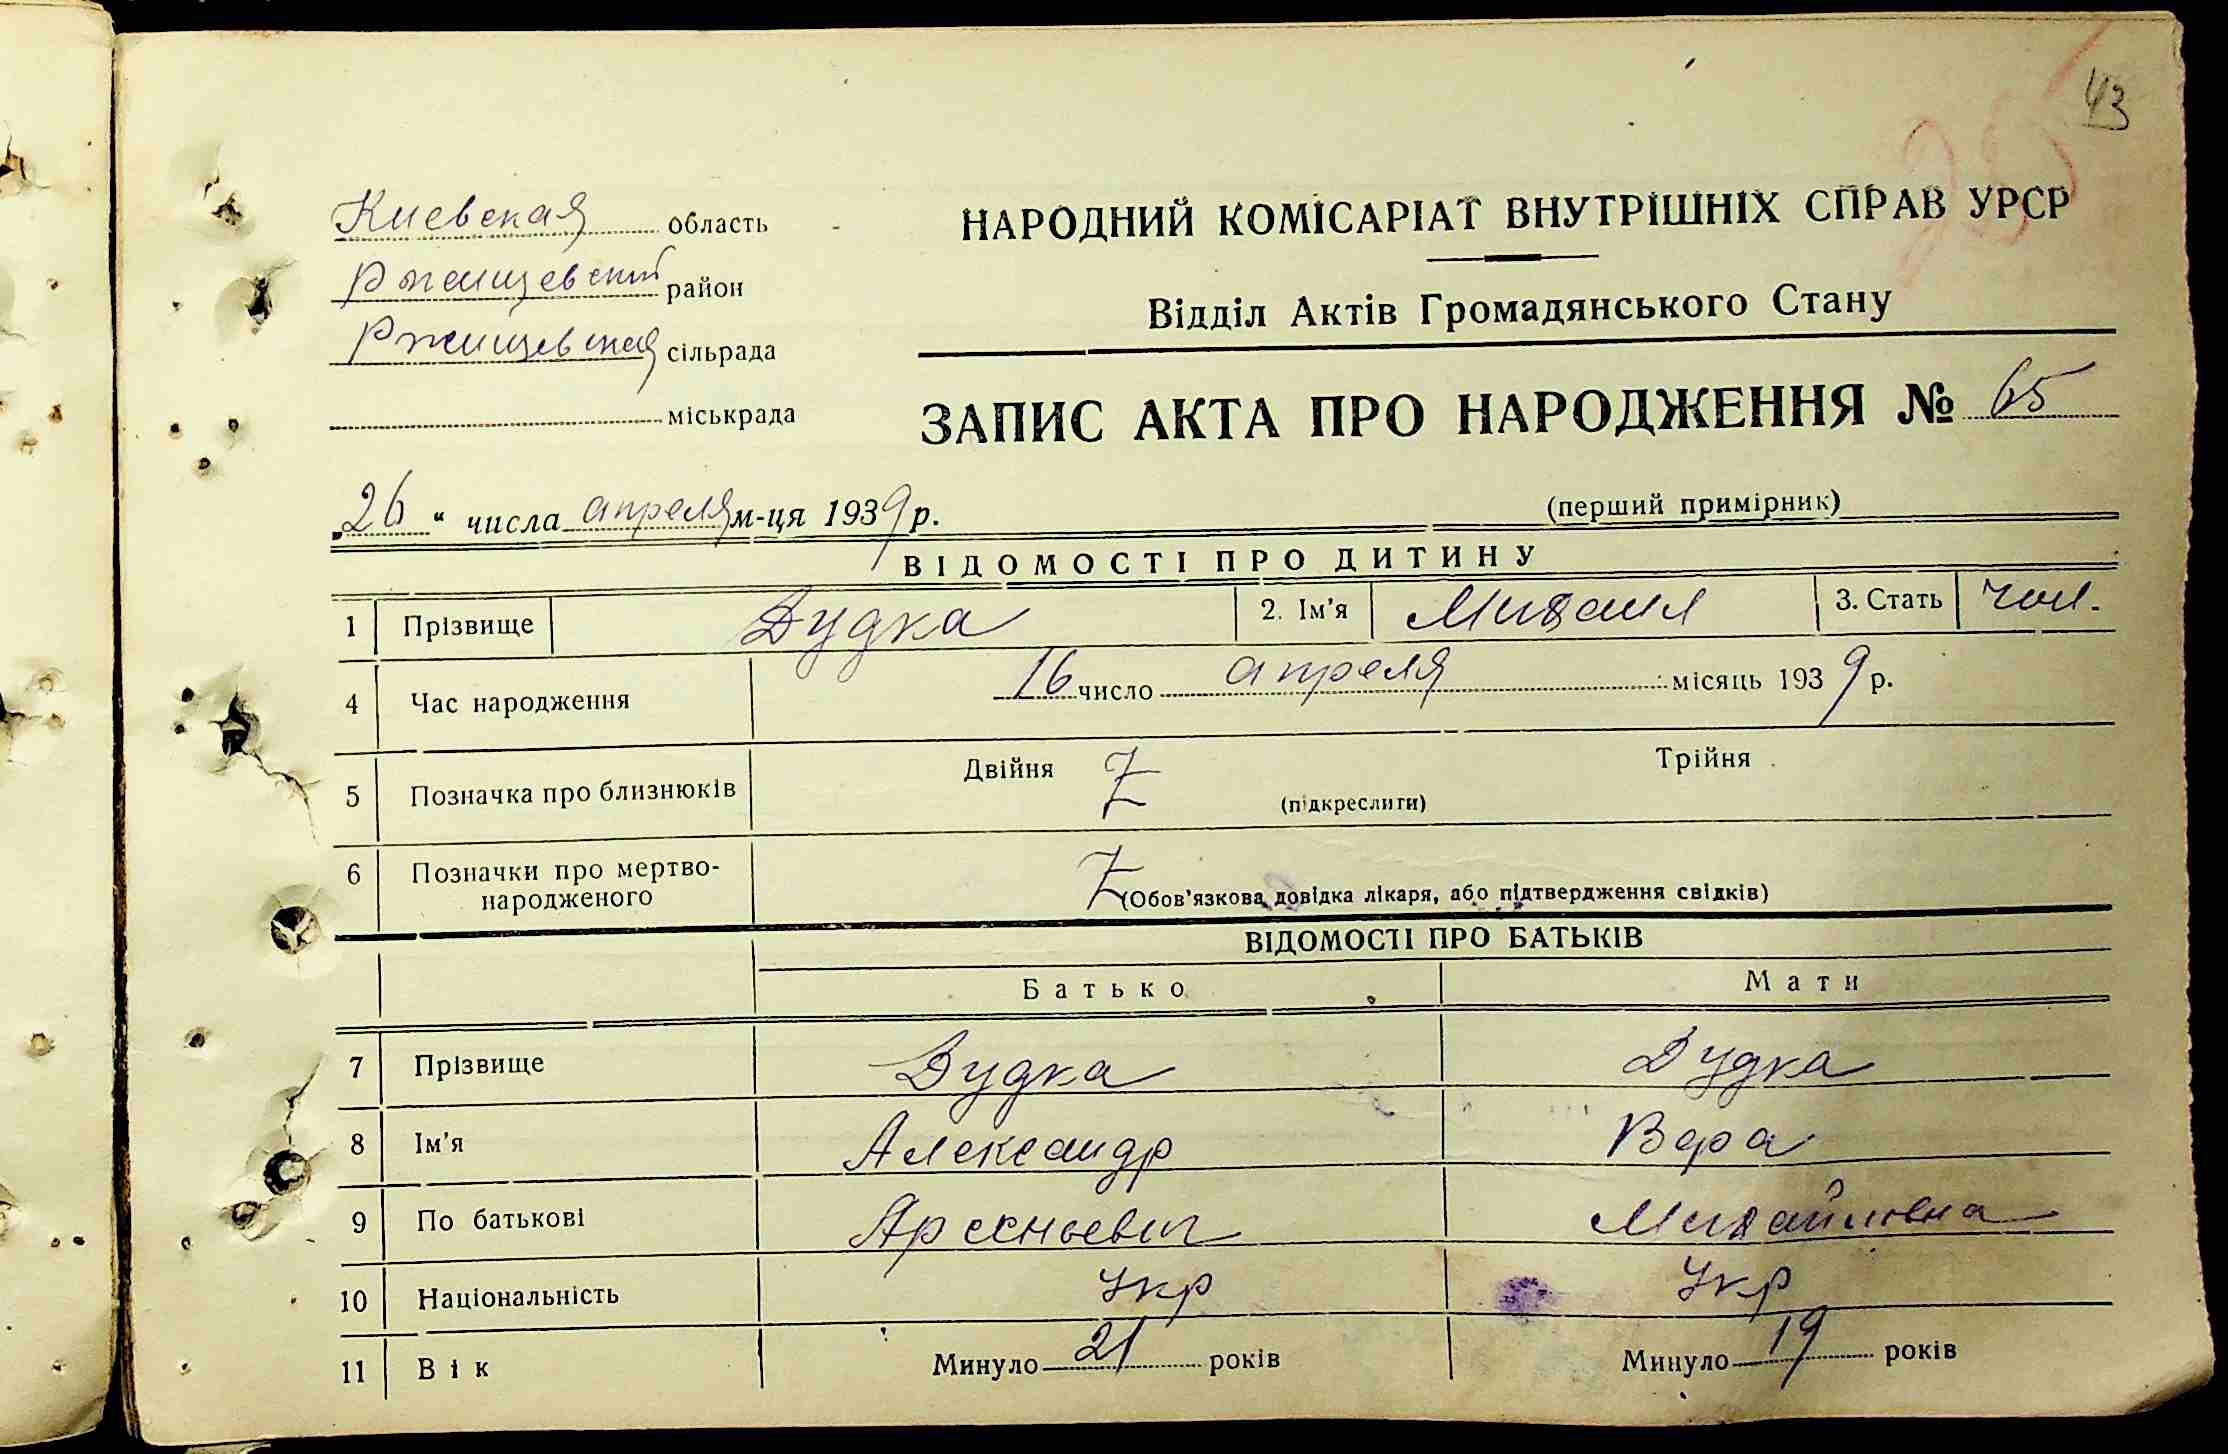 43
Киевская область
Ржищевский район
Ржищевская сільрада
міськрада
НАРОДНИЙ КОМІСАРІАТ ВНУТРІШНІХ СПРАВ УРСР
Відділ Актів Громадянського Стану
ЗАПИС АКТА ПРО НАРОДЖЕННЯ № 65
„26“ числа апреля м-ця 1939 р.
(перший примірник)
ВІДОМОСТІ ПРО ДИТИНУ
1 Прізвище Дудка 2. Ім'я Михаил 3. Стать чол.
4 Час народження 16 число апреля місяць 1939 р.
5 Позначка про близнюків Двійня Z (підкреслити) Трійня
6 Позначки про мертво-
народженого Z (Обов'язкова довідка лікаря, або підтвердження свідків)
ВІДОМОСТІ ПРО БАТЬКІВ
Батько Мати
7 Прізвище Дудка Дудка
8 Ім'я Александр Вера
9 По батькові Арсеньевич Михайловна
10 Національність Укр Укр
11 Вік Минуло 21 років Минуло 19 років